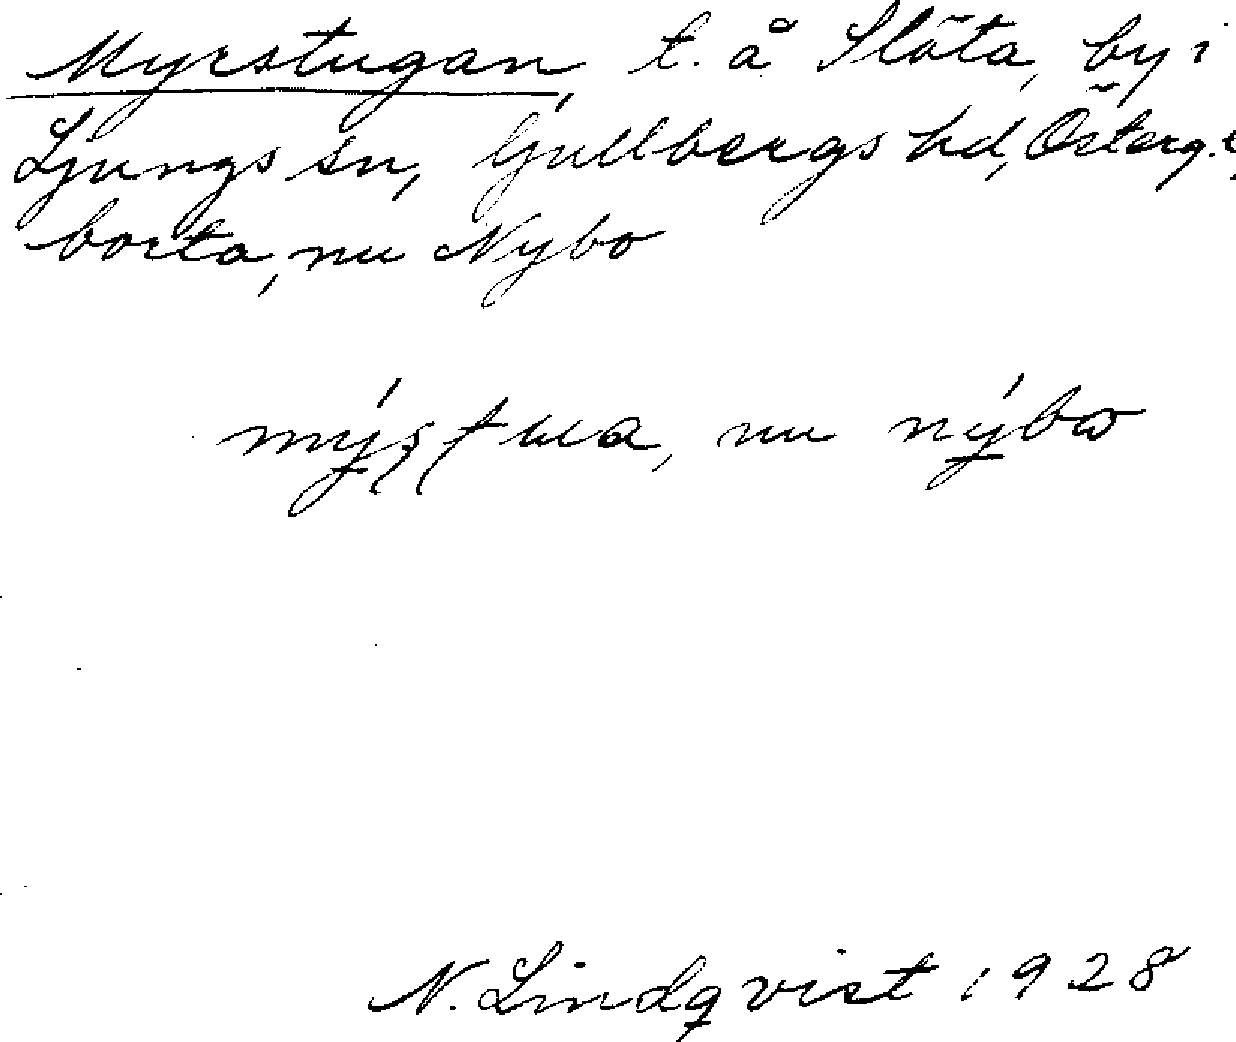 Myrstugan, t. å Slöta, by i
Ljungs sn, Gullbergs hd, Österg.,
borta, nu Nybo
mýstua, nu nýbω
N. Lindqvist 1928